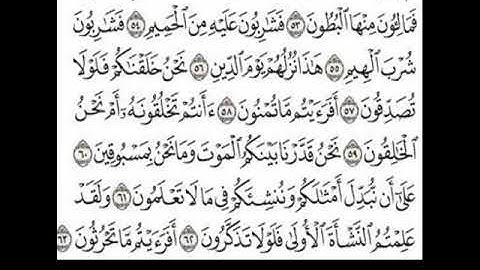 فَمَالِـُٔونَ مِنْهَا ٱلْبُطُونَ ٥٣ فَشَٰرِبُونَ عَلَيْهِ مِنَ ٱلْحَمِيمِ ٥٤ فَشَٰرِبُونَ
شُرْبَ ٱلْهِيمِ ٥٥ هَٰذَا نُزُلُهُمْ يَوْمَ ٱلدِّينِ ٥٦ نَحْنُ خَلَقْنَٰكُمْ فَلَوْلَا
تُصَدِّقُونَ ٥٧ أَفَرَءَيْتُم مَّا تُمْنُونَ ٥٨ ءَأَنتُمْ تَخْلُقُونَهُۥٓ أَمْ نَحْنُ
ٱلْخَٰلِقُونَ ٥٩ نَحْنُ قَدَّرْنَا بَيْنَكُمُ ٱلْمَوْتَ وَمَا نَحْنُ بِمَسْبُوقِينَ ٦٠
عَلَىٰٓ أَن نُّبَدِّلَ أَمْثَٰلَكُمْ وَنُنشِئَكُمْ فِى مَا لَا تَعْلَمُونَ ٦١ وَلَقَدْ
عَلِمْتُمُ ٱلنَّشْأَةَ ٱلْأُولَىٰ فَلَوْلَا تَذَكَّرُونَ ٦٢ أَفَرَءَيْتُم مَّا تَحْرُثُونَ ٦٣